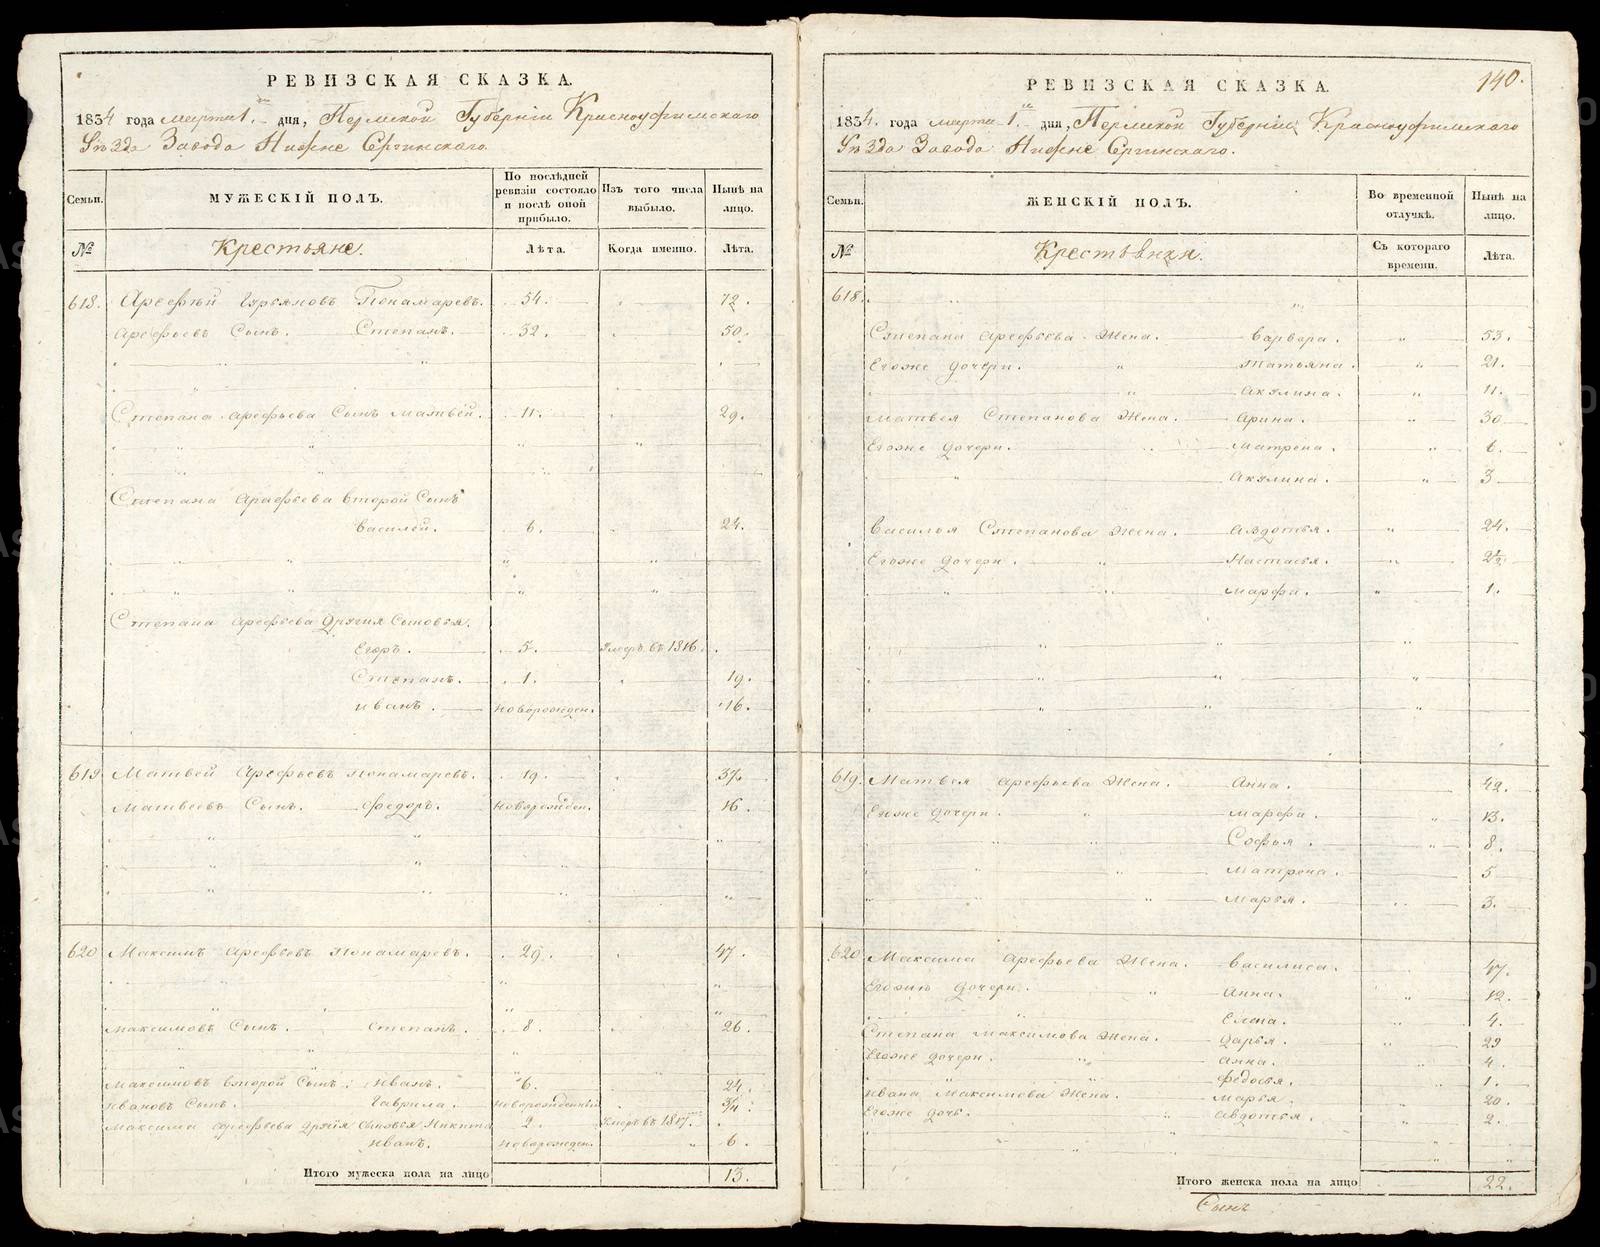 РЕВИЗСКАЯ СКАЗКА.
1834 года марта 1. дня, Пермской Губерніи Красноуфимскаго
Уѣзда Завода Нижне Сергинскаго.
Семьи. МУЖЕСКІЙ ПОЛЪ. По послѣдней ревизіи состояло и послѣ оной прибыло. Изъ того числа выбыло. Нынѣ на лицо.
№ Крестьяне. Лѣта. Когда именно. Лѣта.
618. Арефѣй Гурьяновъ Понамаревъ. 54. 72.
Арефьевъ Сынъ. Степанъ. 32. 50.
Степана Арефьева Сынъ Матвѣй. 11. 29.
Степана Арефьева второй Сынъ
Василей. 6. 24.
Степана Арефьева другия Сыновья.
Егоръ. 5. Умеръ въ 1816.
Степанъ. 1. 19.
Иванъ. новорожден. 16.
619 Матвей Арефьевъ Понамаревъ. 19. 37.
Матвеевъ Сынъ. Федоръ. новорожден. 16.
620 Максимъ Арефьевъ Понамаревъ. 29. 47.
Максимовъ Сынъ. Степанъ. 8. 26.
Максимовъ второй Сынъ. Иванъ. 6. 24.
Ивановъ Сынъ. Гаврила. новорожденный 3/4.
Максима Арефьева другія Сыновья Никита 2. Умеръ въ 1817.
Иванъ. новорожден. 6.
Итого мужеска пола на лицо 13.
РЕВИЗСКАЯ СКАЗКА. 140.
1834. года марта 1. дня, Пермской Губерніи Красноуфимскаго
Уѣзда Завода Нижне Сергинскаго.
Семьи. ЖЕНСКІЙ ПОЛЪ. Во временной отлучкѣ. Нынѣ на лицо.
№ Крестьянки. Съ котораго времени. Лѣта.
618.
Степана Арефьева Жена. Варвара. 53.
Егоже дочери. Татьяна. 21.
Акулина. 11.
Матвея Степанова Жена. Арина. 30
Егоже дочери. Матрена. 6.
Акулина. 3.
Василья Степанова Жена. Авдотья. 24.
Егоже дочери. Настасья. 2 1/2.
Марфа. 1.
619. Матвея Арефьева Жена. Анна. 42.
Егоже дочери. Марфа. 13.
Софья. 8.
Матрена. 5
Марья. 3.
620 Максима Арефьева Жена. Василиса. 47.
Егоже дочери. Анна. 12.
Елена. 4.
Степана Максимова Жена. Дарья. 29
Егоже дочери. Анна. 4.
Федосья. 1.
Ивана Максимова Жена. Марья. 20.
Егоже дочь. Авдотья. 2.
Итого женска пола на лицо 22.
Сынъ